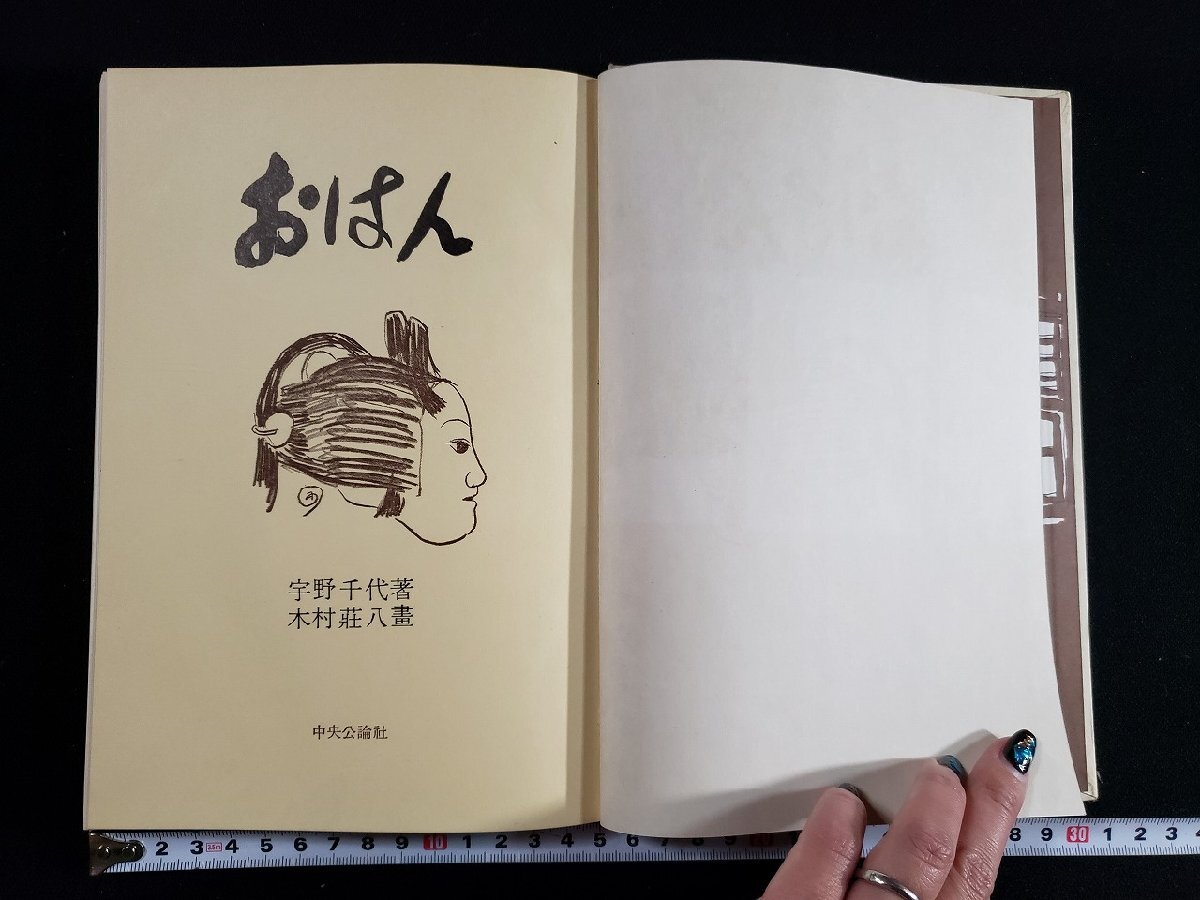 おはん
宇野千代著
木村莊八畫
中央公論社
2 3 3.5m 4 5 6 7 8 9 10 1 2 3 4 5 6 7
8 9 30 1 2 3 4